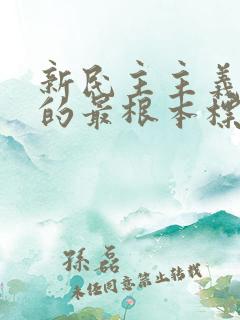 新民主主义
的最根本标
孙磊
未经同意禁止转载